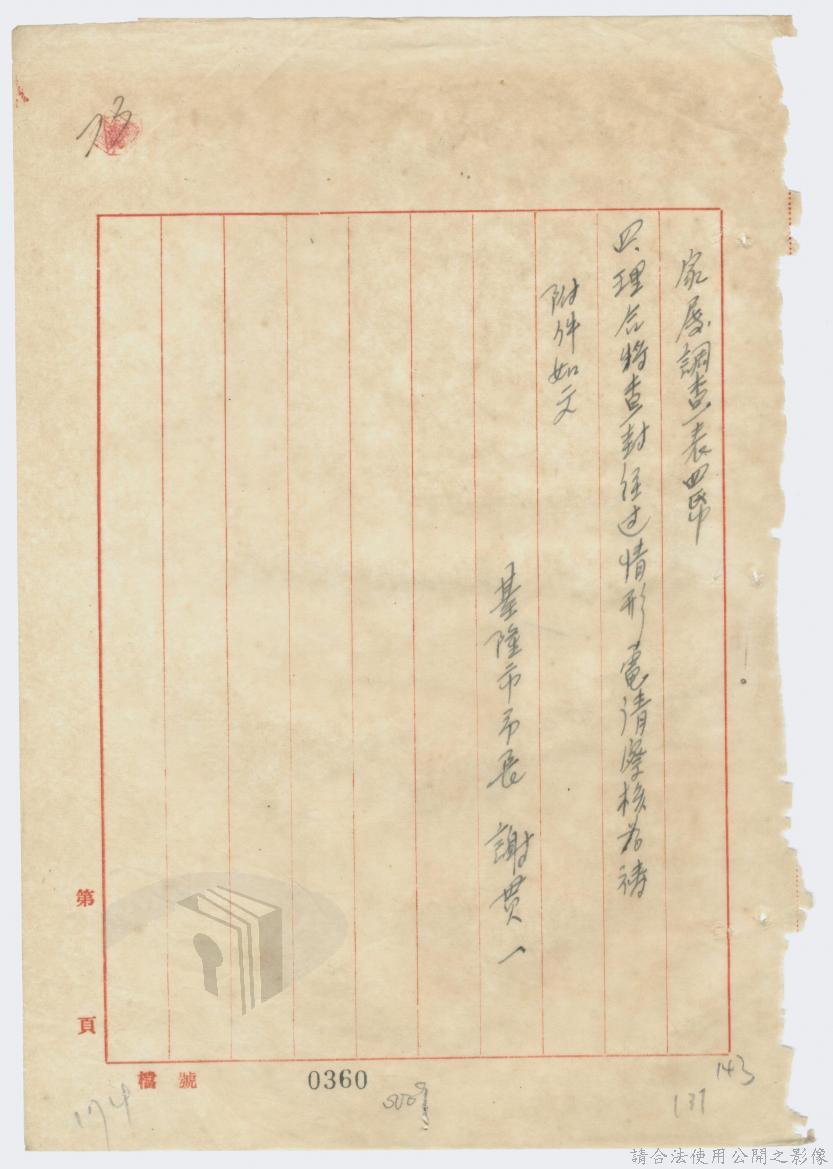 家屬調查表四帋
四、理合將查封经过情形電請察核为禱
附件如文
基隆市市長 謝貫一
第 頁
檔 號
0360
143
137
174
請合法使用公開之影像